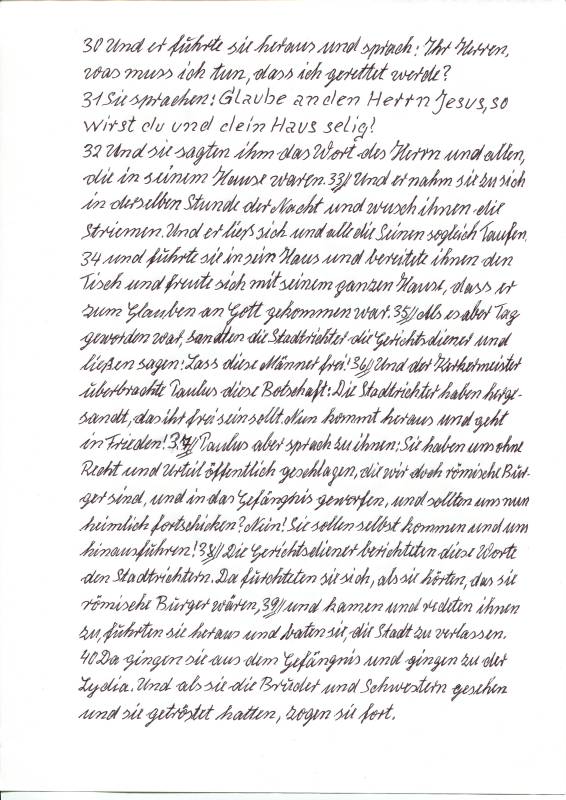 30 Und er führte sie heraus und sprach: Ihr Herren,
was muss ich tun, dass ich gerettet werde?
31 Sie sprachen: Glaube an den Herrn Jesus, so
wirst du und dein Haus selig!
32 Und sie sagten ihm das Wort des Herrn und allen,
die in seinem Hause waren. 33// Und er nahm sie zu sich
in derselben Stunde der Nacht und wusch ihnen die
Striemen. Und er ließ sich und alle die Seinen sogleich Taufen.
34 und führte sie in sein Haus und bereitete ihnen den
Tisch und freute sich mit seinem ganzen Hause, dass er
zum Glauben an Gott gekommen war. 35// Als es aber Tag
geworden war, sandten die Stadtrichter die Gerichtsdiener und
ließen sagen: Lass diese Männer frei! 36// Und der Kerkermeister
überbrachte Paulus diese Botschaft: Die Stadtrichter haben herge-
sandt, das ihr frei sein sollt. Nun kommt heraus und geht
in Frieden! 37// Paulus aber sprach zu ihnen: Sie haben uns ohne
Recht und Urteil öffentlich geschlagen, die wir doch römische Bür-
ger sind, und in das Gefängnis geworfen, und sollten uns nun
heimlich fortschicken? Nein! Sie sollen selbst kommen und uns
hinausführen! 38// Die Gerichtsdiener berichteten diese Worte
den Stadtrichtern. Da fürchteten sie sich, als sie hörten, das sie
römische Bürger wären, 39// und kamen und redeten ihnen
zu, führten sie heraus und baten sie, die Stadt zu verlassen.
40 Da gingen sie aus dem Gefängnis und gingen zu der
Lydia. Und als sie die Brüder und Schwestern gesehen
und sie getröstet hatten, zogen sie fort.